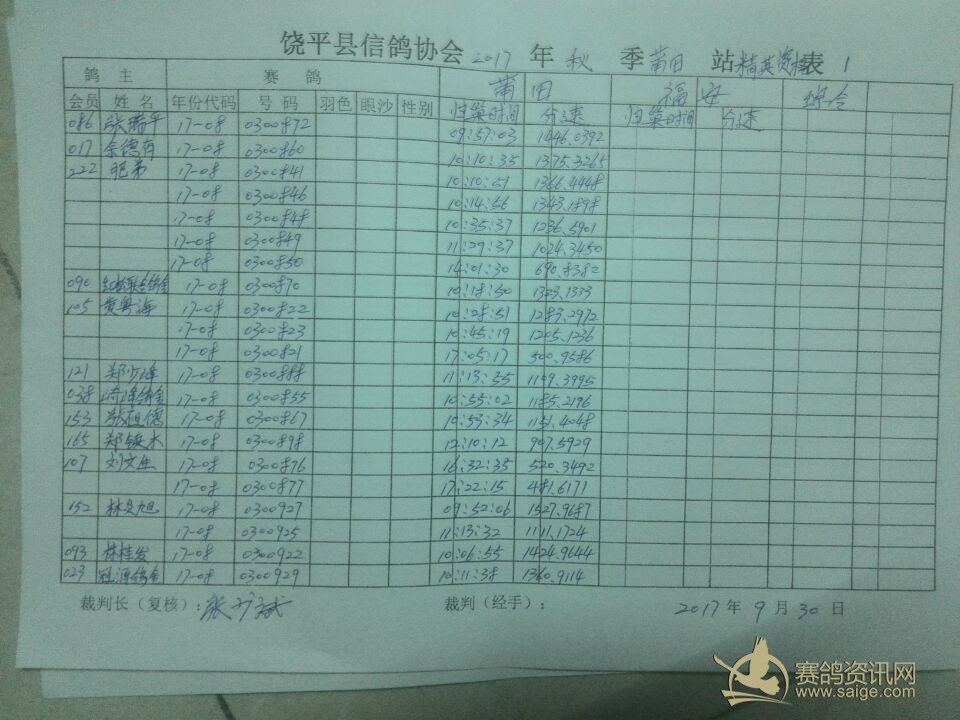 饶平县信鸽协会 2017 年 秋 季 莆田 站 精英赛 表 1
鸽 主 赛 鸽 莆田 福安 综合
会员 姓名 年份代码 号码 羽色 眼沙 性别 归巢时间 分速 归巢时间 分速
086 张瑞平 17-08 0300872 09:57:03 1446.0392
017 余德有 17-08 0300860 10:10:35 1375.3265
222 兄弟 17-08 0300841 10:10:51 1366.4448
17-08 0300846 10:14:56 1343.1898
17-08 0300848 10:35:37 1236.5901
17-08 0300849 11:29:37 1024.3450
17-08 0300850 14:01:30 690.8382
090 17-08 0300870 10:18:50 1323.1333
105 黄粤海 17-08 0300822 10:28:51 1283.2972
17-08 0300823 10:45:19 1205.1236
17-08 0300821 17:05:17 500.9586
121 郑少峰 17-08 0300888 11:13:55 1109.3995
038 17-08 0300855 10:55:02 1185.2196
153 张祖德 17-08 0300867 10:53:34 1151.4048
165 17-08 0300898 12:10:12 907.5929
107 刘文生 17-08 0300876 16:32:35 520.3492
17-08 0300877 17:22:15 481.6171
152 17-08 0300927 09:52:06 1527.9687
17-08 0300925 11:13:32 1111.1724
093 林桂发 17-08 0300922 10:06:55 1424.9644
023 17-08 0300929 10:11:38 1360.9114
裁判长（复核）： 裁判（经手）： 2017 年 9 月 30 日
赛鸽资讯网
www.saige.com